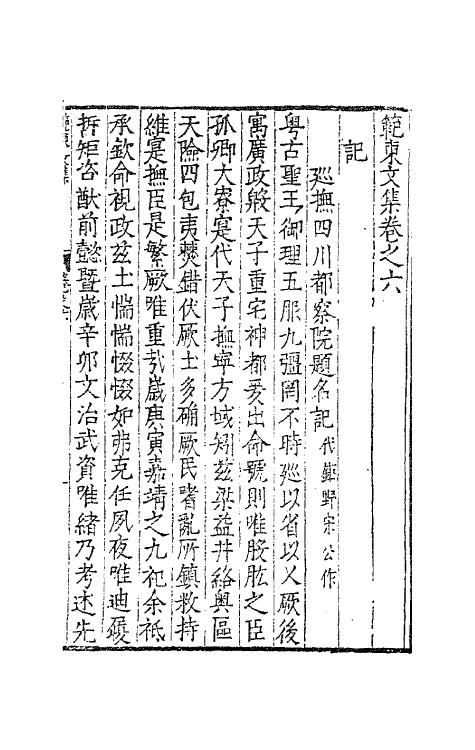 範東文集卷之六
記
廵撫四川都察院題名記代藍野宋公作
粤古聖王御理五服九疆罔不時廵以省以乂厥後
寓廣政殷天子重宅神都爰出命號則唯股肱之臣
孤卿大寮寔代天子撫寧方域矧兹梁益井絡輿區
天險四包夷獠錯伏厥土多确厥民嗜亂所鎮救持
維寔撫臣是繁厥唯重哉歲庚寅嘉靖之九祀余祗
承欽命視政兹土惴惴惙惙如弗克任夙夜唯迪履
哲矩咨猷前懿暨歲辛卯文治武資唯緒乃考述先